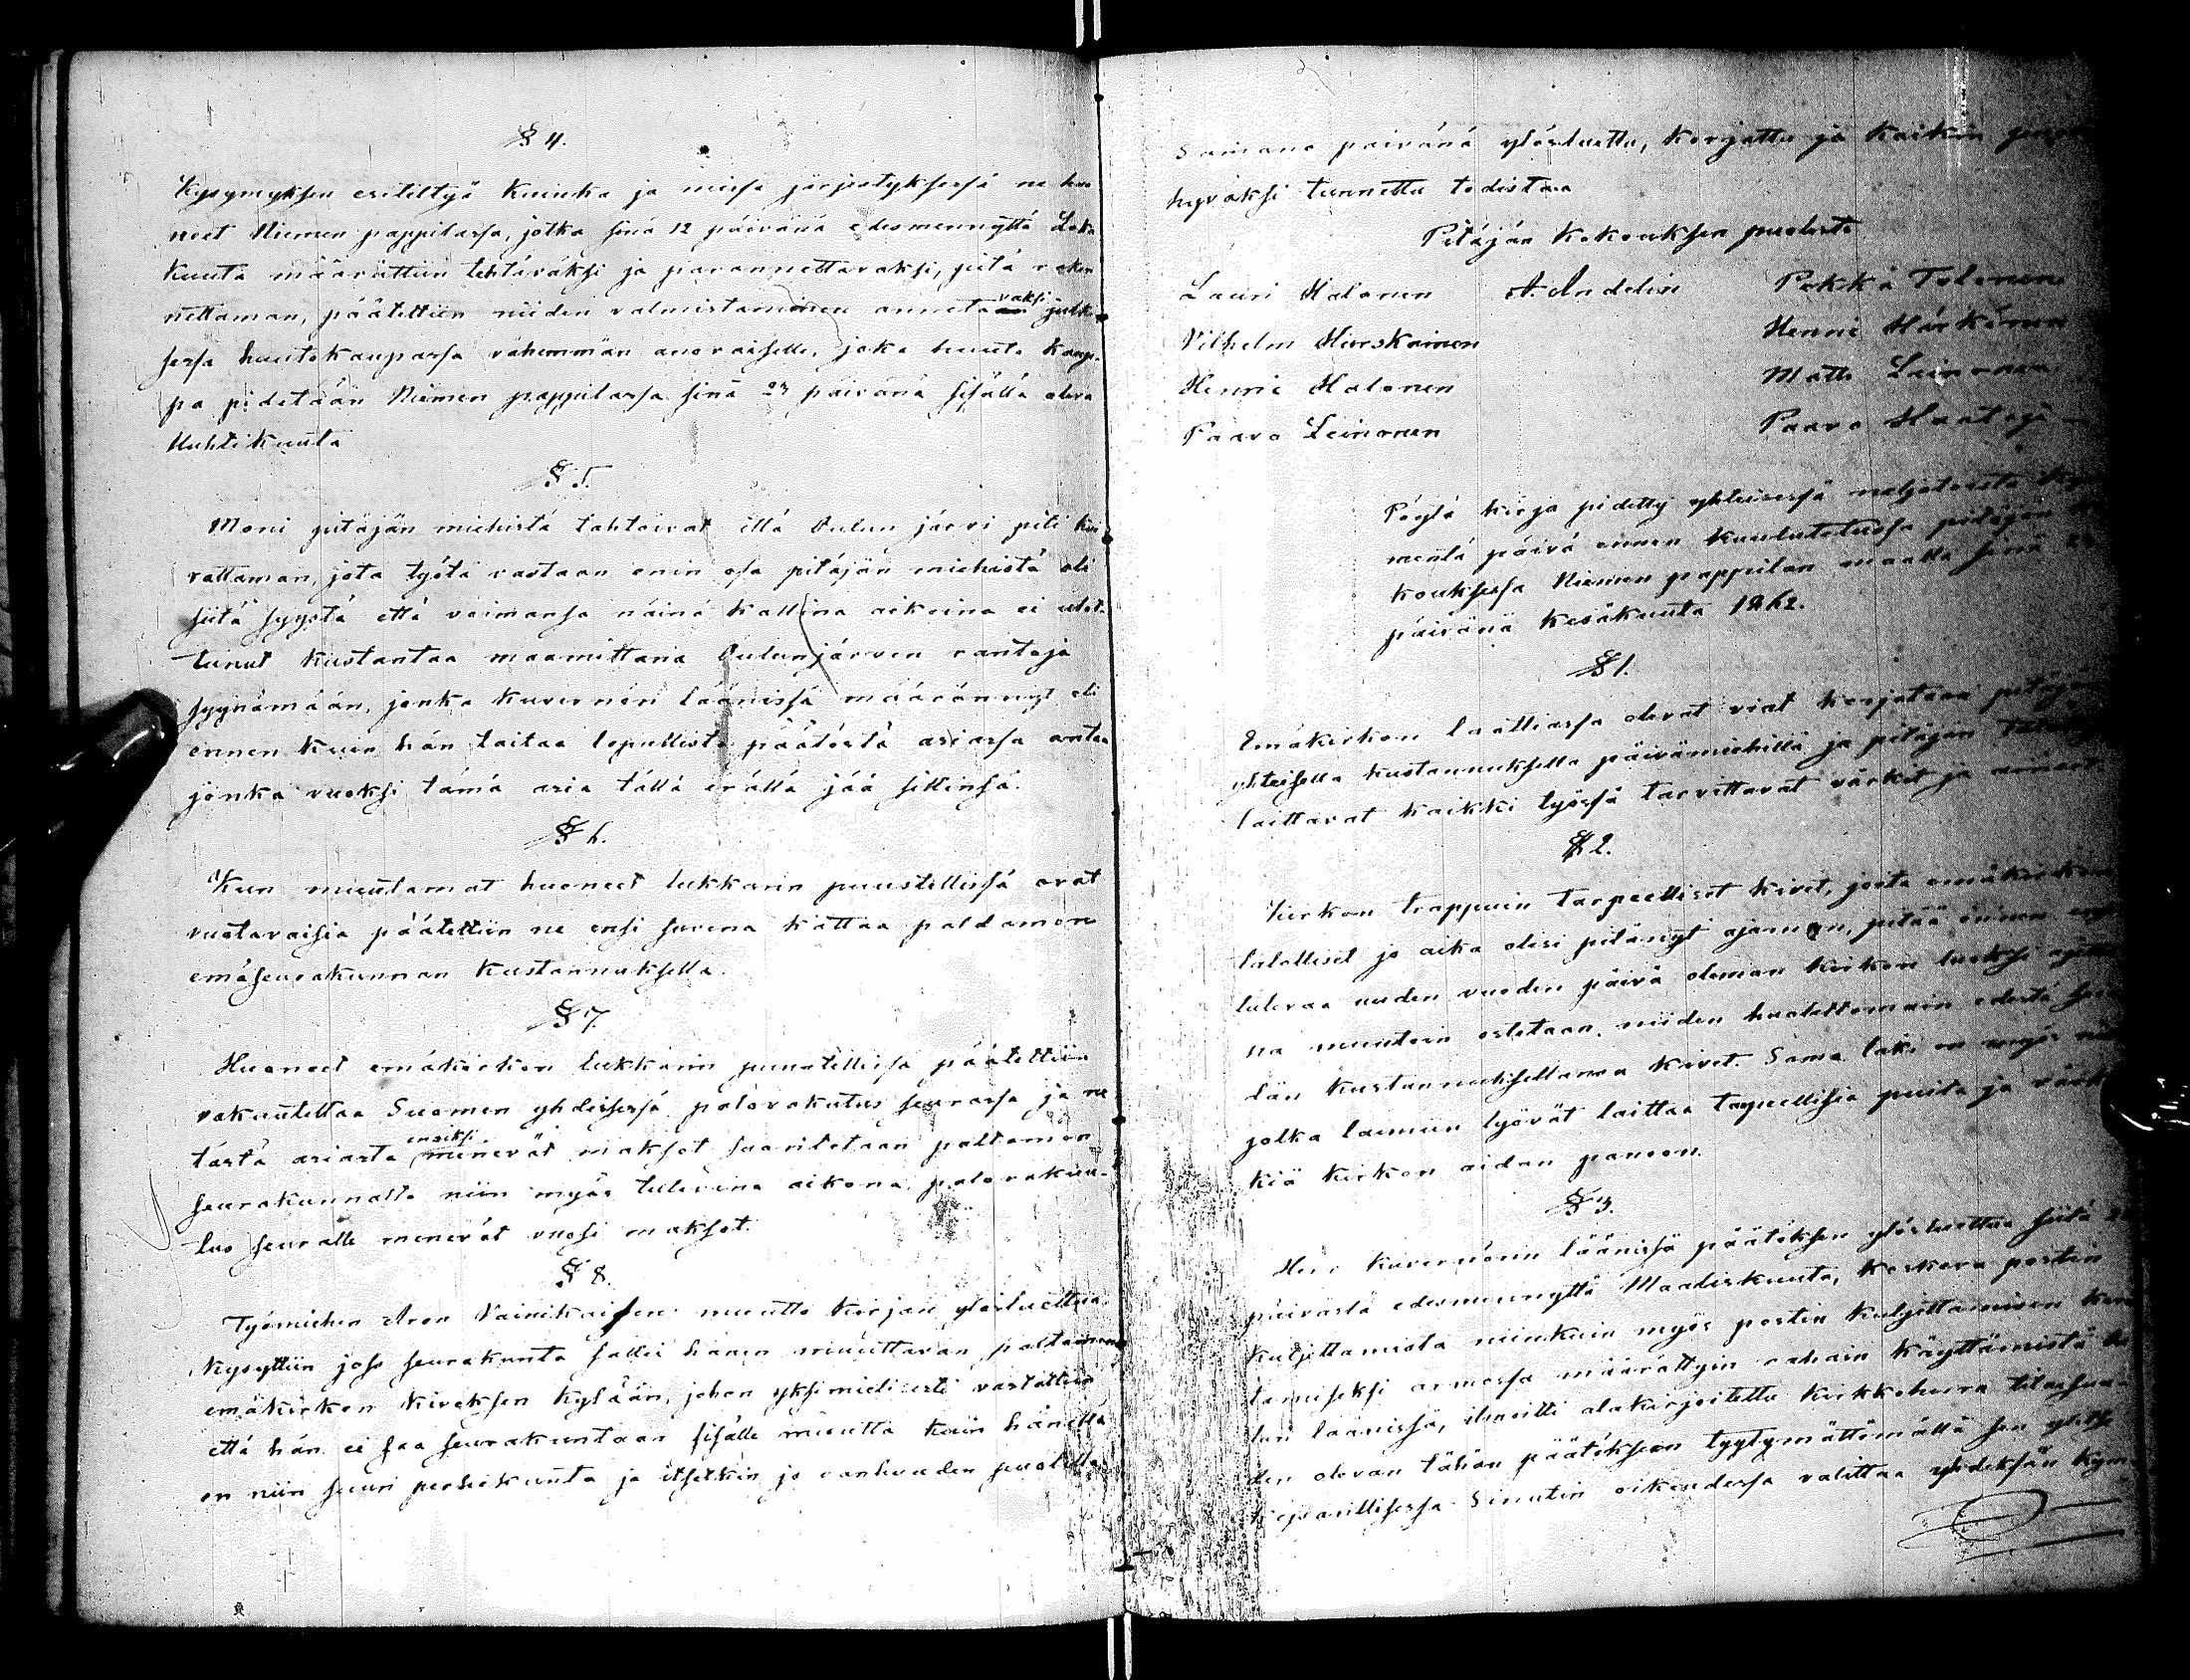 § 4.
Kysymyksen esiteltyä kuinka ja missä järjestyksessä ne huo
neet Niemen pappilassa, jotka sinä 12 päivänä edesmennyttä Loka
kuuta määrättiin tehtäväksi ja parannettavaksi, pitä raken
nettaman, päätettiin niiden valmistaminen annettavaksi julki
sessa huutokaupassa vähemmän anovaiselle, joka huuto kaup-
pa pidetään Niemen pappilassa sinä 23 päivänä sisällä oleva
Huhtikuuta
§ 5.
Moni pitäjän miehistä tahtoivat että Oulun järvi piti kui
vattaman, jota työtä vastaan enin osa pitäjän miehistä oli
siitä syystä että voimansa näinä kallina aikoina ei ulot-
tunut kustantaa maamittaria Oulunjärven rantoja
syynämään, jonka kuvernöri läänissä määrännyt oli
ennen kuin hän taitaa lopullista päätöstä asiassa antaa
jonka vuoksi tämä asia tällä erällä jää sillinsä.
§ 6.
Kun muutamat huoneet lukkarin puustellissä ovat
vuotavaisia päätettiin ne ensi suvena kattaa paldamon
emäseurakunnan kustannuksella.
§ 7.
Huoneet emäkirkon lukkarin puustellissa päätettiin
vakuutettaa Suomen yhdisessä palovakutus seurassa ja ne
tästä asiasta ensiksi menevät maksot suoritetaan paltamon
seurakunnalta niin myös tulevina aikona palovakuu-
tus seuralle menevät vuosi maksot.
§ 8.
Työmiehen Aron Vainikaisen muutto kirjan ylösluettua
kysyttiin joko seurakunta sallii hänen muuttavan paltamon
emäkirkon Kiveksen kylään, johon yksimielisesti vastattiin
että hän ei saa seurakuntaan sisälle muutta kuin hänellä
on niin suuri perhekunta ja itsekin jo vanhuuden puolella
Samana päivänä ylösluettu, korjattu ja kaikin
hyväksi tunnettu todistaa
Pitäjän kokouksen puolesta
Lauri Halonen A. Andelin Pekka Tolonen
Vilhelm Hurskainen Henrie Härkönen
Henrie Halonen Matti Leinonen
Paavo Leinonen Paavo Haataja
Pöytä kirja pidetty yhteisessä neljätoista
mentä päivä ennen kuulutetussa pitäjän
kouksessa Niemen pappilan maalla sinä
päivänä Kesäkuuta 1862.
§ 1.
Emäkirkon laattiassa olevat viat korjataan pitäjän
yhteisellä kustannuksella päivämiehillä ja pitäjän
laittavat kaikki työssä tarvittavat värkit ja aineet
§ 2.
Kirkon trappuin tarpeelliset kivet, joita emäkirkon
talolliset jo aika olisi pitänyt ajaman, pitää ennen
tulevaa uuden vuoden päivä oleman kirkon luoksi
na muutoin ostetaan niiden huolettomain edestä
dän kustannuksellansa kivet. Sama laki on myös
jotka laimiin lyövät laittaa tarpeellisia puita ja värk
kiä kirkon aidan panoon.
§ 3.
Herr Kuvernörin läänissä päätöksen ylösluettua siitä
päivästä edesmennyttä Maaliskuuta, koskeva postin
kuljettamista niinkuin myös postin kuljettamisen
tamiseksi armossa määrättyin rahain käyttämistä
lun läänissä, ilmoitti alakirjoitettu kirkkoherra
den olevan tähän päätökseen tyytymättömällä sen
keisarillisessa Sinatin oikeudessa valittaa yhdeksän kym-